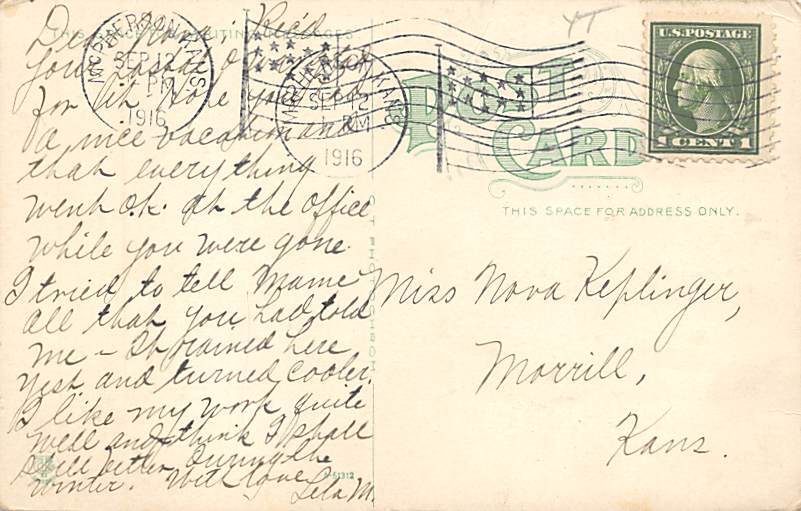 Dear Nova: Rec'd
your
for it. Hope you had
a nice vacation and
that everything
went O.K. at the office
while you were gone.
I tried to tell Mame
all that you had told
me – It rained here
yest and turned cooler.
I like my work quite
well and think I shall
during the
winter. With love Lela M.
McPHERSON, KANS.
SEP 12
PM
1916
McPHERSON, KANS.
SEP 12
PM
1916
U.S. POSTAGE
1 CENT 1
POST
CARD
THIS SPACE FOR ADDRESS ONLY.
Miss Nova Keplinger,
Morrill,
Kans.